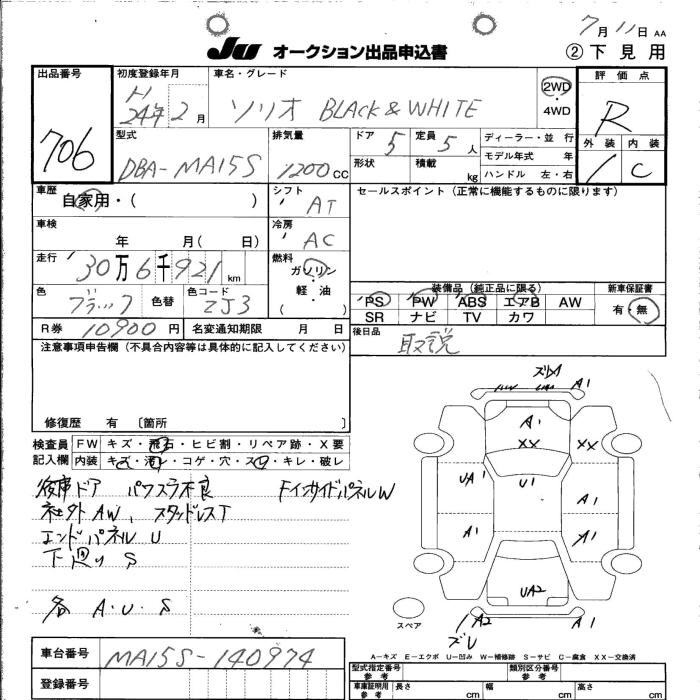 7月11日 AA
JU オークション出品申込書
② 下見用
出品番号 706
初度登録年月 H24年2月
車名・グレード ソリオ BLACK & WHITE
2WD
・4WD
評価点 R
外装 内装
1 C
型式 DBA-MA15S
排気量 1200CC
ドア 5 定員 5人
形状 積載 kg
ディーラー・並 行
モデル年式 年
ハンドル 左・右
車歴 自家用・( )
シフト AT
セールスポイント(正常に機能するものに限ります)
車検 年 月( 日)
冷房 AC
走行 30万6千921km
燃料 ガソリン・軽・油 ( )
色 ブラック 色替 色コード ZJ3
装備品(純正品に限る)
PS PW ABS エアB AW
SR ナビ TV カワ
新車保証書 有・無
R券 10900円 名変通知期限 月 日
後日品 取説
注意事項申告欄(不具合内容等は具体的に記入してください)
修復歴 有 〔箇所 〕
検査員記入欄
FW キズ・飛石・ヒビ割・リペア跡・X要
内装 キズ・汚レ・コゲ・穴・スレ・キレ・破レ
後席ドア パワスラ不良 FインサイドパネルW
社外AW、スタッドレスT
エンドパネル U
下廻り S
各 A・U・S
ズレA1 A1
A1
XX XX
UA1 U1 A1
A1 A1
UA2
A2 A1
ズレ
スペア
A-キズ E-エクボ U-凹み W-補修跡 S-サビ C-腐食 XX-交換済
車台番号 MA15S-140974
登録番号
型式指定番号 参考 類別区分番号 参考
車庫証明用 参考 長さ cm 幅 cm 高さ cm